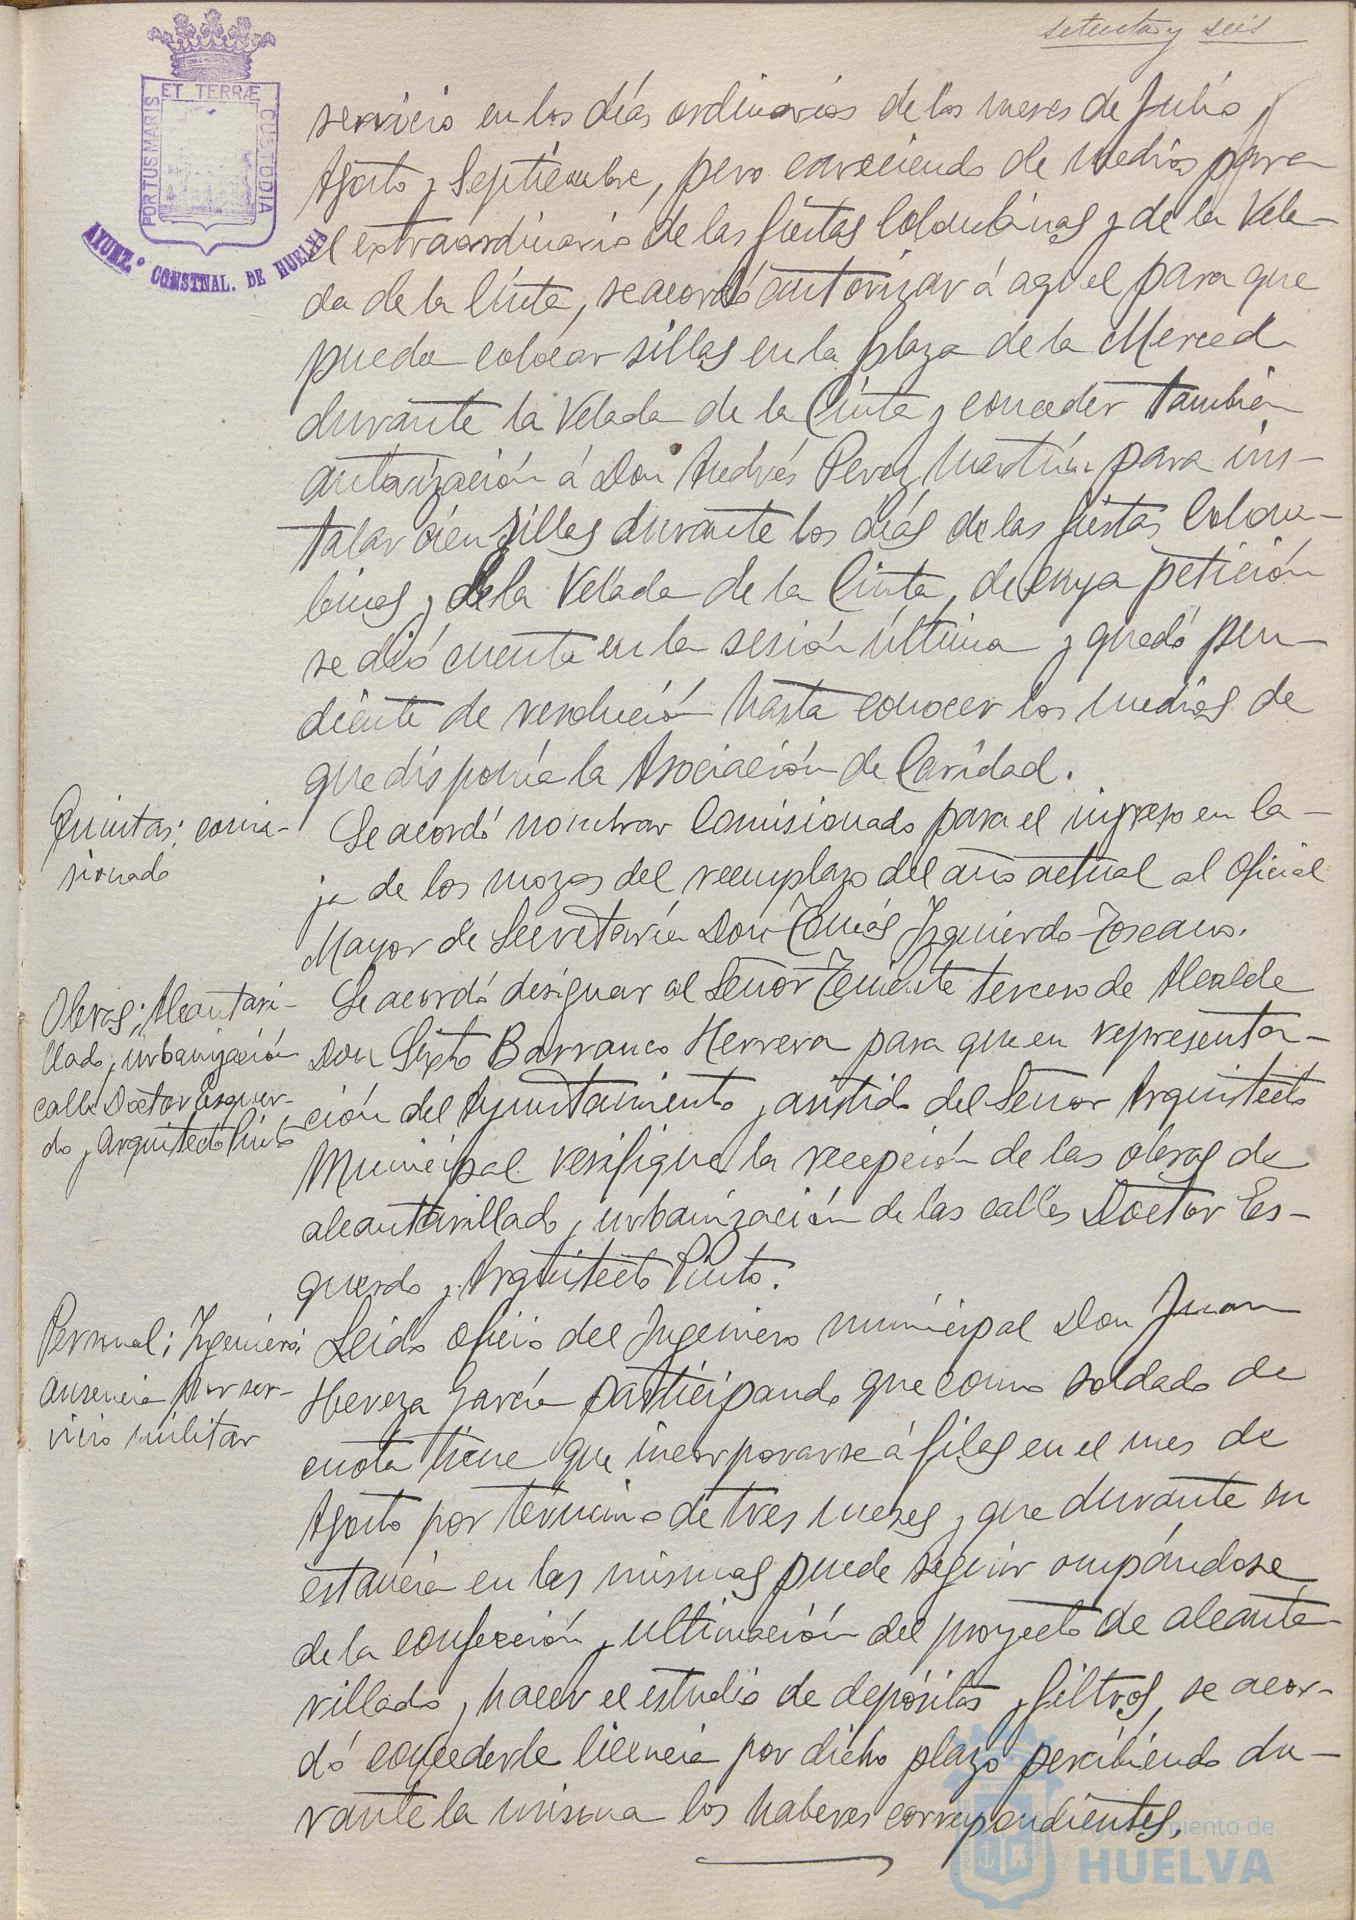 setenta y seis
ET TERRÆ
PORTUS MARIS
CUSTODIA
AYUNT.º CONSTNAL. DE HUELVA
servicio en los días ordinarios de los meses de Julio,
Agosto y Septiembre, pero careciendo de medios para
el extraordinario de las fiestas Colombinas y de la Vela-
da de la Cinta, se acordó autorizar á aquel para que
pueda colocar sillas en la plaza de la Merced
durante la Velada de la Cinta y conceder también
autorización á Don Andrés Perez Martín para ins-
talar cien sillas durante los días de las fiestas Colom-
binas y de la Velada de la Cinta, de cuya petición
se dió cuenta en la sesión última y quedó pen-
diente de resolución hasta conocer los medios de
que disponía la Asociación de Caridad.
Quintas; comi-
sionado
Se acordó nombrar Comisionado para el ingreso en Ca-
ja de los mozos del reemplazo del año actual al Oficial
Mayor de Secretaría Don Tomás Izquierdo Toscano.
Obras; Alcantari-
llado y urbanización
calle Doctor Esquer-
do y Arquitecto Pinto
Se acordó designar al Señor Teniente tercero de Alcalde
Don Sixto Barranco Herrera para que en representa-
ción del Ayuntamiento y asistido del Señor Arquitecto
Municipal verifique la recepción de las obras de
alcantarillado y urbanización de las calles Doctor Es-
querdo y Arquitecto Pinto.
Personal; Ingeniero;
ausencia por ser-
vicio militar
Leido oficio del Ingeniero municipal Don Juan
Hereza García participando que como soldado de
cuota tiene que incorporarse á filas en el mes de
Agosto por término de tres meses y que durante su
estancia en las mismas puede seguir ocupándose
de la confección y ultimación del proyecto de alcanta-
rillado y hacer el estudio de depósitos y filtros, se acor-
dó concederle licencia por dicho plazo percibiendo du-
rante la misma los haberes correspondientes.
Ayuntamiento de
HUELVA